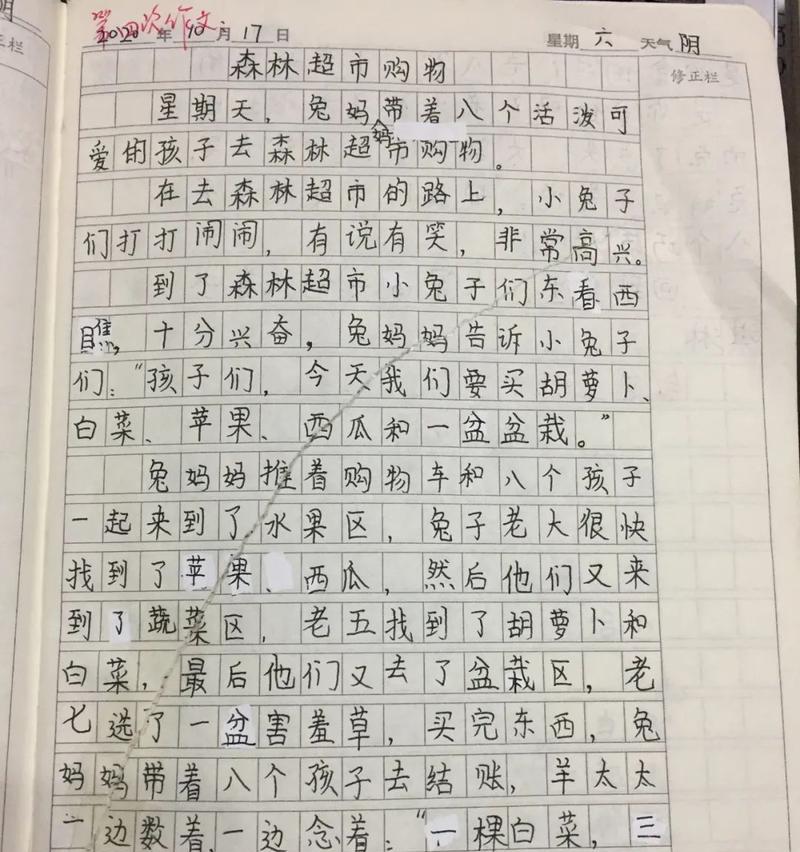 第四次作文
2020年10月17日 星期六 天气阴
修正栏
森林超市购物
星期天，兔妈妈带着八个活泼可
爱的孩子去森林超市购物。
在去森林超市的路上，小兔子
们打打闹闹，有说有笑，非常高兴。
到了森林超市小兔子们东看西
瞧，十分兴奋，兔妈妈告诉小兔子
们："孩子们，今天我们要买胡萝卜、
白菜、苹果、西瓜和一盆盆栽。"
兔妈妈推着购物车和八个孩子
一起来到了水果区，兔子老大很快
找到了苹果、西瓜，然后他们又来
到了蔬菜区，老五找到了胡萝卜和
白菜，最后他们又去了盆栽区，老
七选了一盆害羞草，买完东西，兔
妈妈带着八个孩子去结账，羊太太
一边数着，一边念着："一棵白菜，三